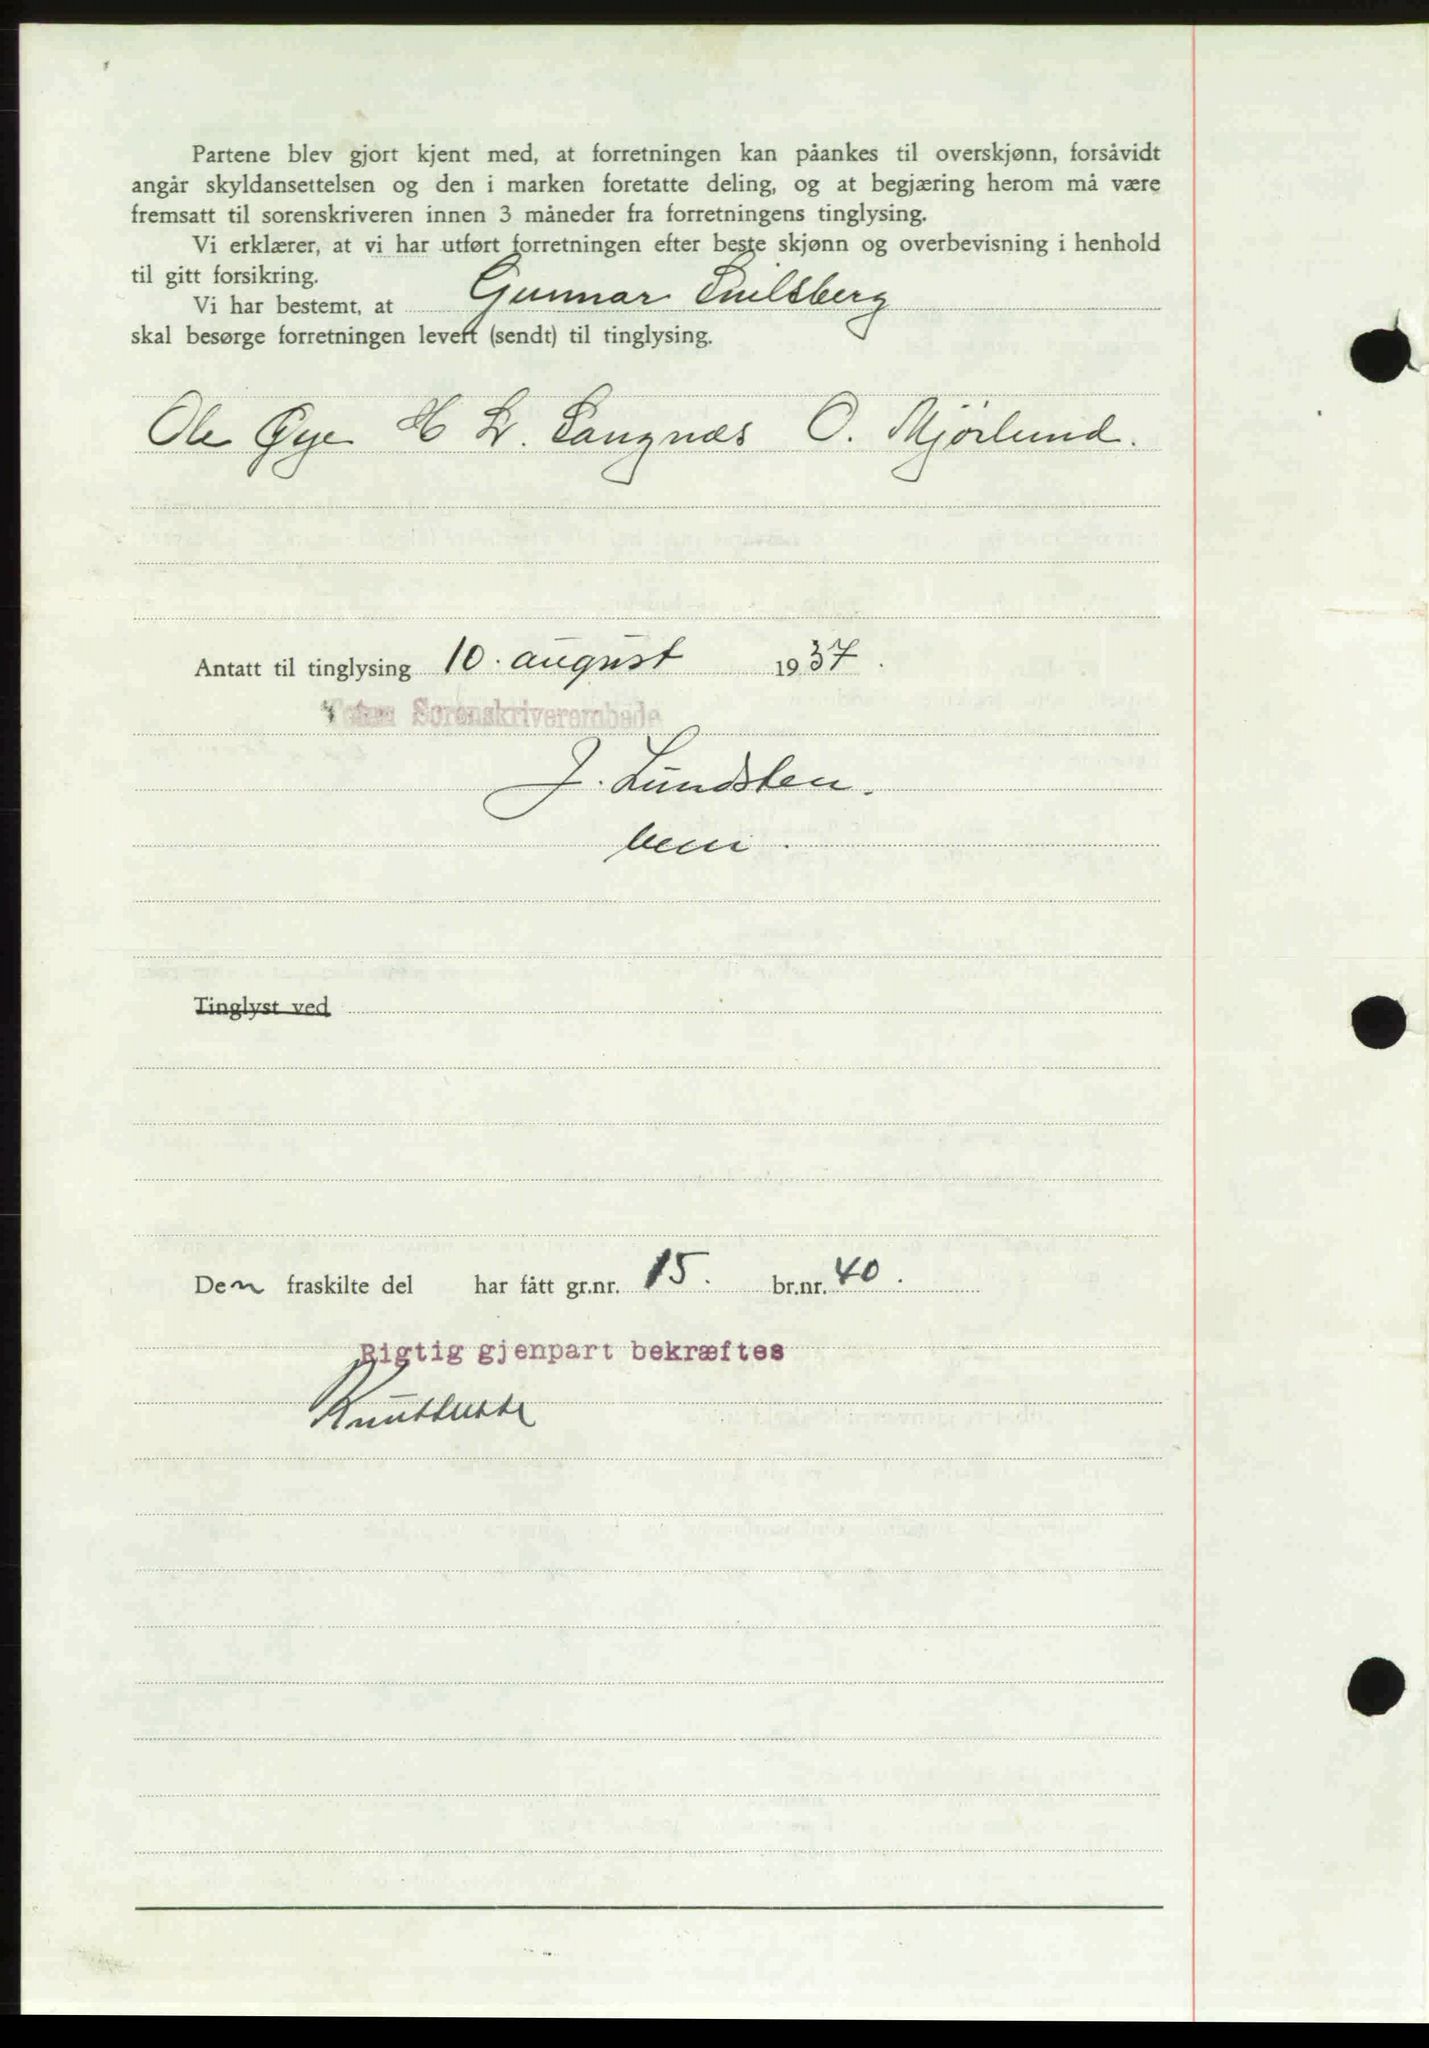 Partene blev gjort kjent med, at forretningen kan påankes til overskjønn, forsåvidt
angår skyldansettelsen og den i marken foretatte deling, og at begjæring herom må være
fremsatt til sorenskriveren innen 3 måneder fra forretningens tinglysing.
Vi erklærer, at vi har utført forretningen efter beste skjønn og overbevisning i henhold
til gitt forsikring.
Vi har bestemt, at Gunnar Snilsberg
skal besørge forretningen levert (sendt) til tinglysing.
Ole Øye H Lr. Langnæs O. Mjörlund.
Antatt til tinglysing 10. august 1937.
Toten Sorenskriverembede
J. Lundsten.
Tinglyst ved
Den fraskilte del har fått gr.nr. 15. br.nr. 40.
Rigtig gjenpart bekræftes